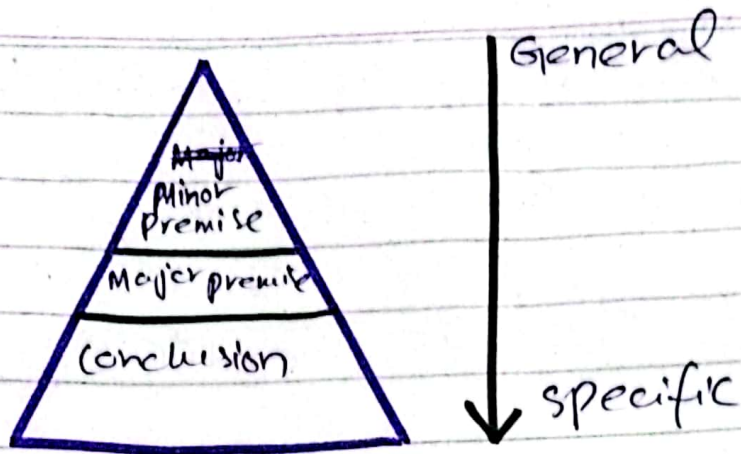 General
Major
Minor
Premise
Major premise
Conclusion
specific